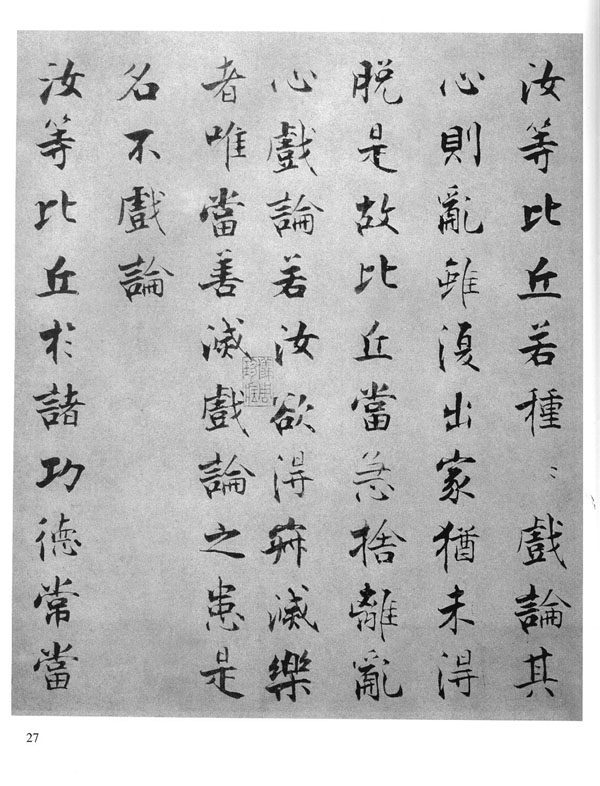 汝等比丘若種〻戲論其
心則亂雖復出家猶未得
脱是故比丘當急捨離亂
心戲論若汝欲得寂滅樂
者唯當善滅戲論之患是
名不戲論
汝等比丘於諸功德常當
27